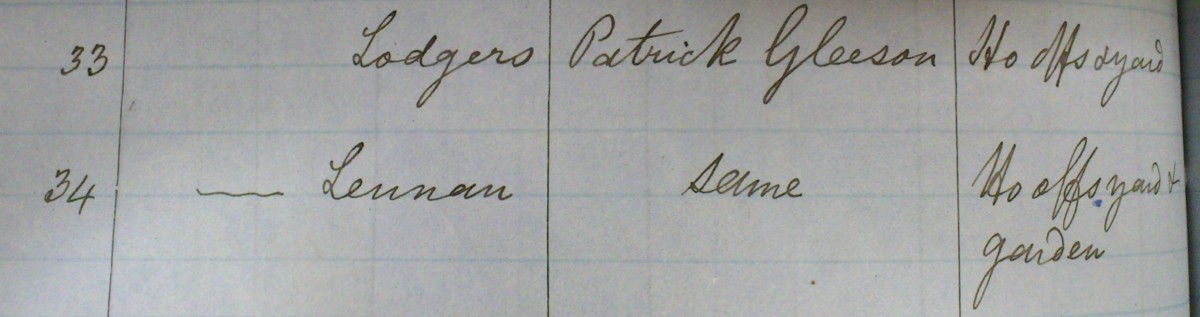 33 Lodgers Patrick Gleeson Ho offs & yard
34 — Lennan same Ho offs yard &
garden